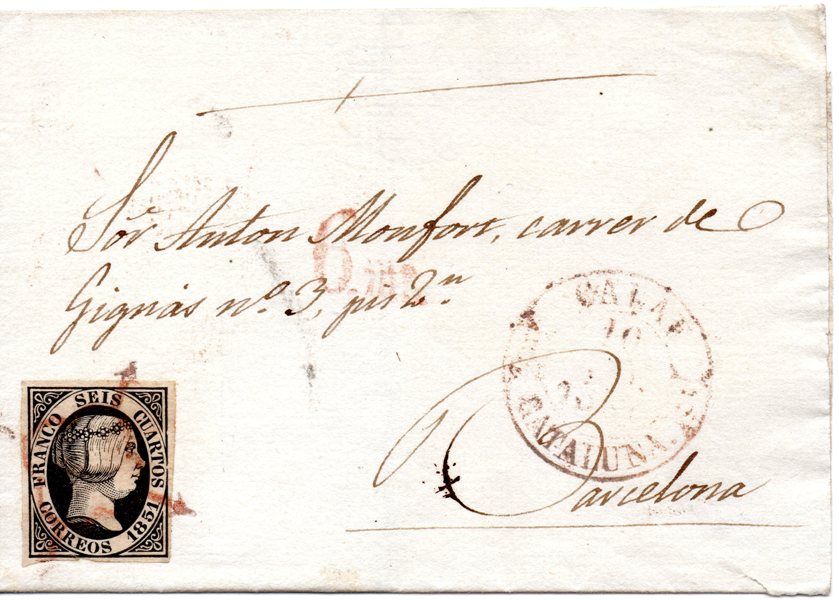 Sor Anton Monfort, carrer de
Gignás nº 3, pis 2n
Barcelona
CALAF
10
CATALUNA.
FRANCO SEIS CUARTOS
CORREOS 1851